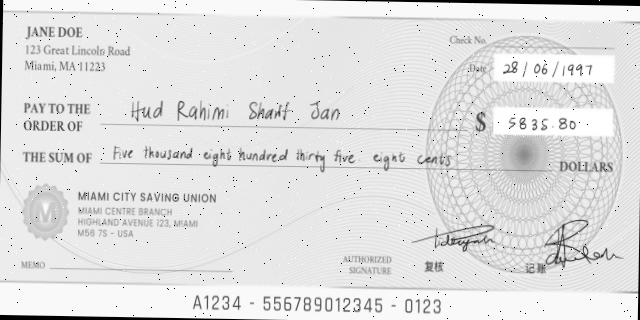 JANE DOE
123 Great Lincoln Road
Miami, MA 11223
Check No.
Date 28/06/1997
PAY TO THE ORDER OF Hud Rahimi Sharif Jan
$ 5835.80
THE SUM OF Five thousand eight hundred thirty five eight cents DOLLARS
MIAMI CITY SAVING UNION
MIAMI CENTRE BRANCH
HIGHLAND AVENUE 123, MIAMI
M56 7S - USA
MEMO
AUTHORIZED SIGNATURE
复核
记账
A1234 - 556789012345 - 0123